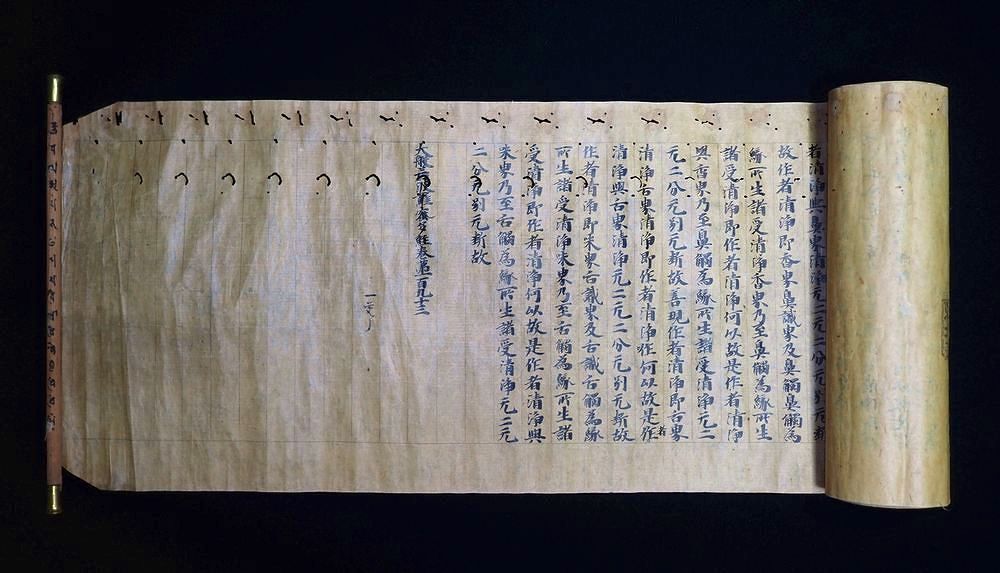 者清淨與鼻界清淨无二无二分无別无斷
故作者清淨即香界鼻識界及鼻觸鼻觸為
緣所生諸受清淨香界乃至鼻觸為緣所生
諸受清淨即作者清淨何以故是作者清淨
與香界乃至鼻觸為緣所生諸受清淨无二
无二分无別无斷故善現作者清淨即舌界
清淨舌界清淨即作者清淨何以故是作者
清淨與舌界清淨无二无二分无別无斷故
作者清淨即味界舌識界及舌觸舌觸為緣
所生諸受清淨味界乃至舌觸為緣所生諸
受清淨即作者清淨何以故是作者清淨與
味界乃至舌觸為緣所生諸受清淨无二无
二分无別无斷故
大般若波羅蜜多經卷第一百九十三